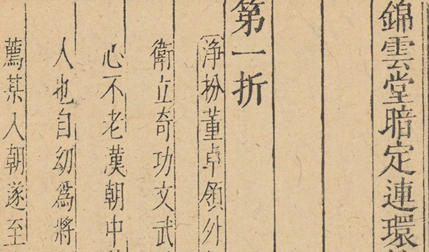 錦雲堂暗定連環
第一折
淨扮董卓領外
衛立竒功文武
心不老漢朝中
人也自㓜爲將
薦某入朝遂至